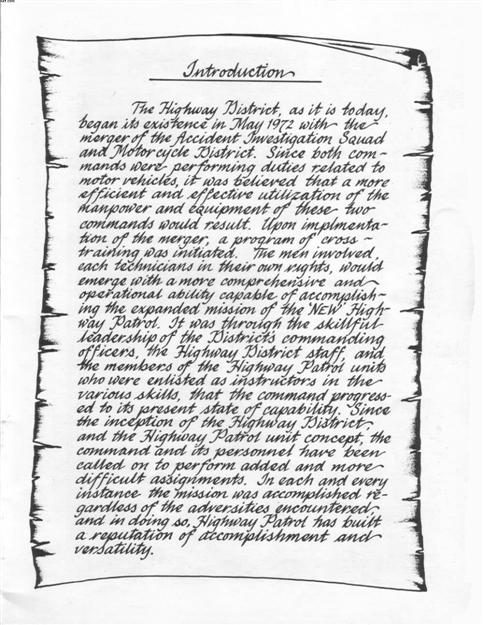 Introduction
The Highway District, as it is today,
began its existence in May 1972 with the
merger of the Accident Investigation Squad
and Motorcycle District. Since both com-
mands were performing duties related to
motor vehicles, it was believed that a more
efficient and effective utilization of the
manpower and equipment of these two
commands would result. Upon implmenta-
tion of the merger, a program of cross-
training was initiated. The men involved,
each technicians in their own rights, would
emerge with a more comprehensive and
operational ability capable of accomplish-
ing the expanded mission of the NEW High-
way Patrol. It was through the skillful
leadership of the Districts commanding
officers, the Highway District staff, and
the members of the Highway Patrol units
who were enlisted as instructors in the
various skills, that the command progress-
ed to its present state of capability. Since
the inception of the Highway District,
and the Highway Patrol unit concept, the
command and its personnel have been
called on to perform added and more
difficult assignments. In each and every
instance the mission was accomplished re-
gardless of the adversities encountered,
and in doing so, Highway Patrol has built
a reputation of accomplishment and
versatility.